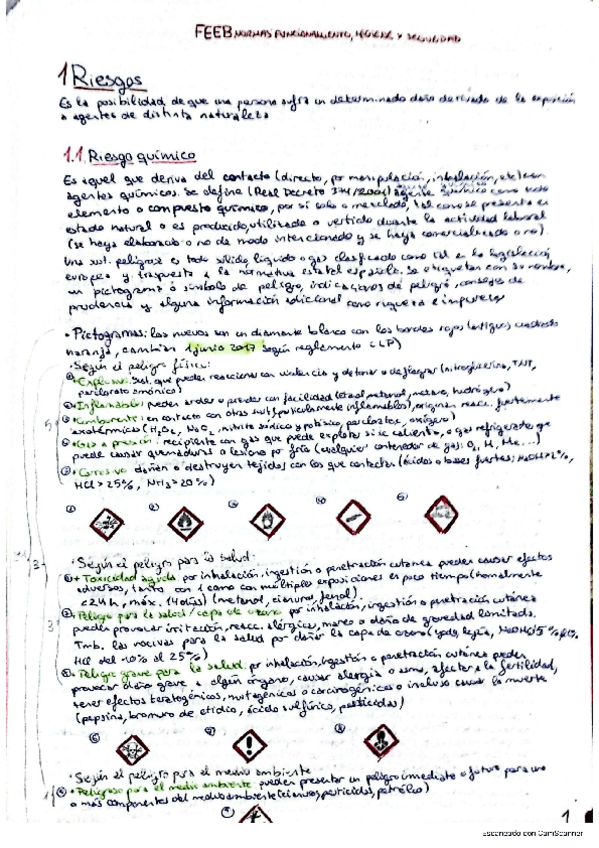 FEEB NORMAS FUNCIONAMIENTO, HIGIENE Y SEGURIDAD
1 Riesgos
Es la posibilidad de que una persona sufra un determinado daño derivado de la exposición
a agentes de distinta naturaleza
1.1 Riesgo químico
Es aquel que deriva del contacto (directo, por manipulación, inhalación, etc) con
agentes químicos. Se define (Real Decreto 374/2001) agente químico como todo
elemento o compuesto químico, por sí solo o mezclado, tal como se presenta en
estado natural o es producido, utilizado o vertido durante la actividad laboral
(se haya elaborado o no de modo intencionado y se haya comercializado o no).
Una sust. peligrosa es todo sólido, líquido o gas clasificado como tal en la legislación
europea y traspuesto a la normativa estatal española. Se etiquetan con su nombre,
un pictograma o símbolo de peligro, indicaciones de peligro, consejos de
prudencia y alguna información adicional como riqueza e impurezas
• Pictogramas: los nuevos son un diamante blanco con los bordes rojos (antiguos cuadrado
naranja, cambian 1 junio 2017 según reglamento CLP)
• Según el peligro físico:
+ Explosivo: sust. que pueden reaccionar con violencia y detonar o deflagrar (nitroglicerina, TNT,
perclorato amónico)
+ Inflamable: pueden arder o prender con facilidad (etanol, metanol, metano, hidrógeno)
+ Comburente: en contacto con otras sust. (particularmente inflamables), originan reacc. fuertemente
exotérmicas (H2O2, nitrito sódico y potásico, percloratos, oxígeno)
+ Gas a presión: recipiente con gas que puede explotar si se calienta, o gas refrigerado que
puede causar quemaduras o lesiones por frío (cualquier contenedor de gas: O2, H, He...)
+ Corrosivo: dañan o destruyen tejidos con los que contactan (ácidos o bases fuertes: NaOH>2%,
HCl>25%, NH3>20%)
• Según el peligro para la salud:
+ Toxicidad aguda: por inhalación, ingestión o penetración cutánea pueden causar efectos
adversos, tanto con 1 como con múltiple exposiciones en poco tiempo (normalmente
<24h, máx. 14 días) (metanol, cianuro, fenol).
+ Peligro para la salud / capa de ozono: por inhalación, ingestión o penetración cutánea
pueden provocar irritación, reacc. alérgicas, mareo o daño de gravedad limitada.
Tmb. las nocivas para la salud por dañar la capa de ozono (yodo, lejía,
HCl del 10% al 25%)
+ Peligro grave para la salud: por inhalación, ingestión o penetración cutánea pueden
provocar daño grave a algún órgano, causar alergia o asma, afectar a la fertilidad,
tener efectos teratogénicos, mutagénicos o carcinogénicos o incluso causar la muerte
(pepsina, bromuro de etidio, ácido sulfúrico, pesticidas)
• Según el peligro para el medio ambiente
+ Peligroso para el medio ambiente: pueden presentar un peligro inmediato o futuro para uno
o más componentes del medio ambiente (cianuros, pesticidas, petróleo)
1
Escaneado con CamScanner